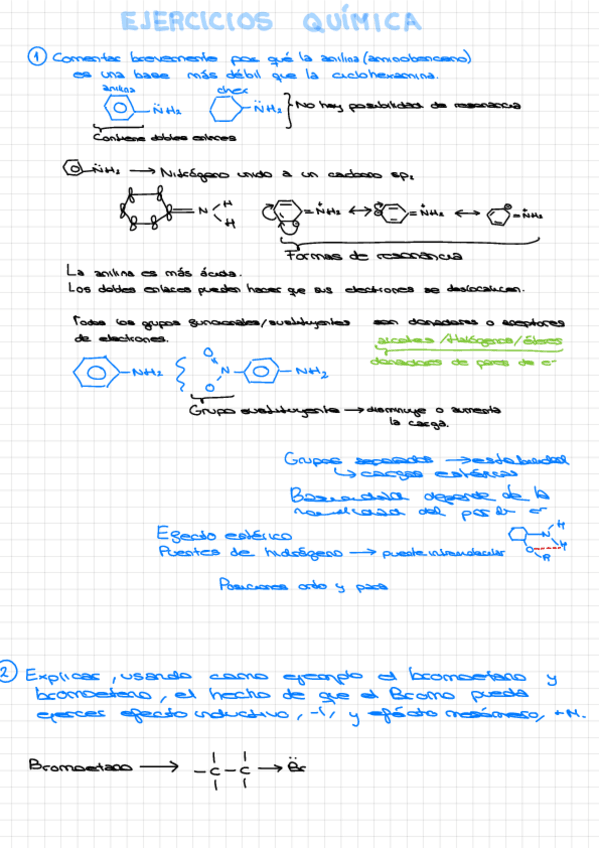 EJERCICIOS QUÍMICA
1 Comentar brevemente por qué la anilina (aminobenceno)
es una base más débil que la ciclohexamina.
anilina chex
N̈H₂ N̈H₂ No hay posibilidad de resonancia
Contiene dobles enlaces
N̈H₂ → Nitrógeno unido a un carbono sp₂
= N H H = NH₂ ↔ = NH₂ ↔ = NH₂
Formas de resonancia
La anilina es más ácida.
Los dobles enlaces pueden hacer que sus electrones se deslocalicen.
Todos los grupos funcionales/sustituyentes son donadores o aceptores
de electrones. alcoholes /Halógenos/ éteres
donadores de pares de e⁻
NH₂ O O N NH₂
Grupo sustituyente → disminuye o aumenta
la carga.
Grupos separados → estabilidad
↳ cargas estéricas
Basicidad depende de la
del par de e⁻
Efecto estérico
Puentes de hidrógeno → puente intramolecular N H H O R
Posiciones orto y para
2 Explicar, usando como ejemplo el bromoetano y
bromoeteno, el hecho de que el Bromo pueda
ejercer efecto inductivo, -I, y efecto mesómero, +M.
Bromoetano → - C - C → B̈r